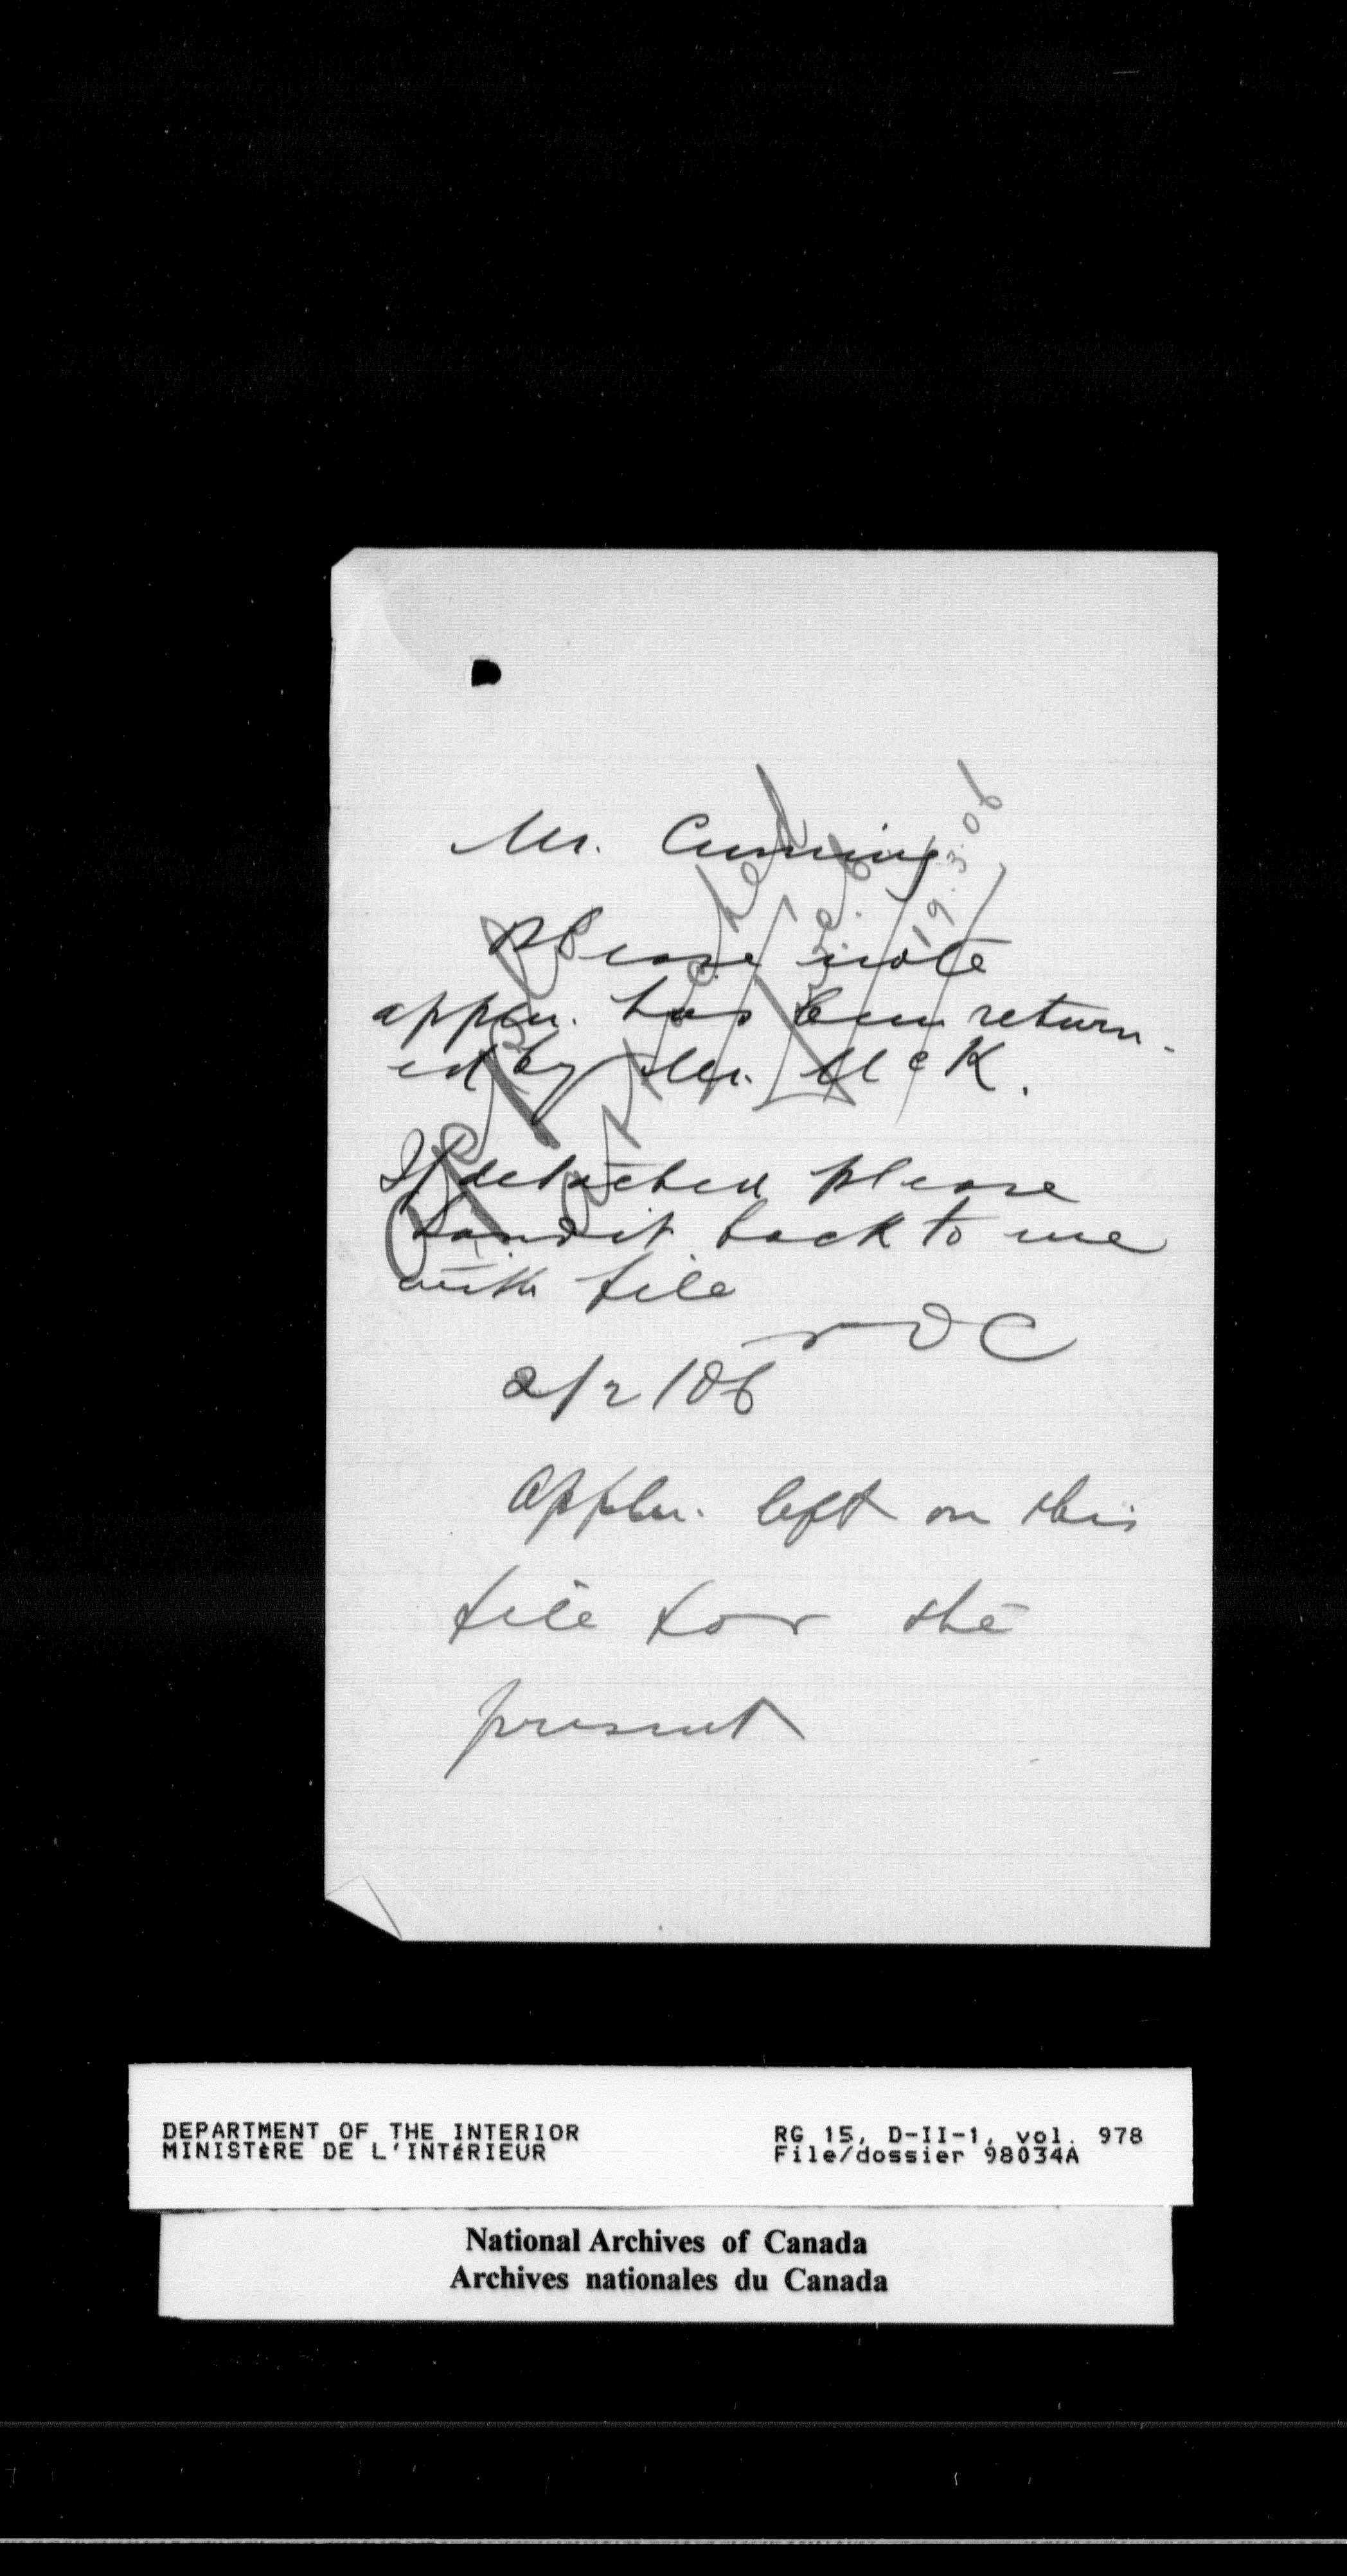 Mr. Cumming
Please note
appln. has been return-
ed by Mr. McK.
If detached please
hand it back to me
with file
NDC
2/2/06
Appln. left on this
file for the
present
19.3.06
DEPARTMENT OF THE INTERIOR
MINISTÈRE DE L'INTÉRIEUR
RG 15, D-II-1, vol. 978
File/dossier 98034A
National Archives of Canada
Archives nationales du Canada